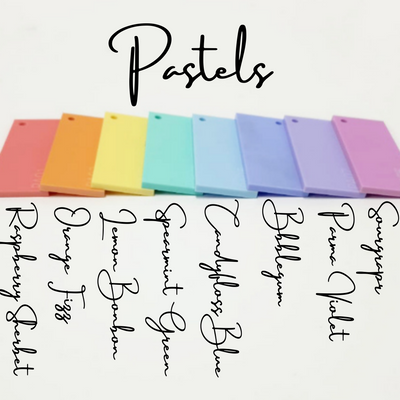 Pastels
Raspberry Sherbet
Orange Fizz
Lemon Bonbon
Spearmint Green
Candyfloss Blue
Bubblegum
Parma Violet
Sourgrape